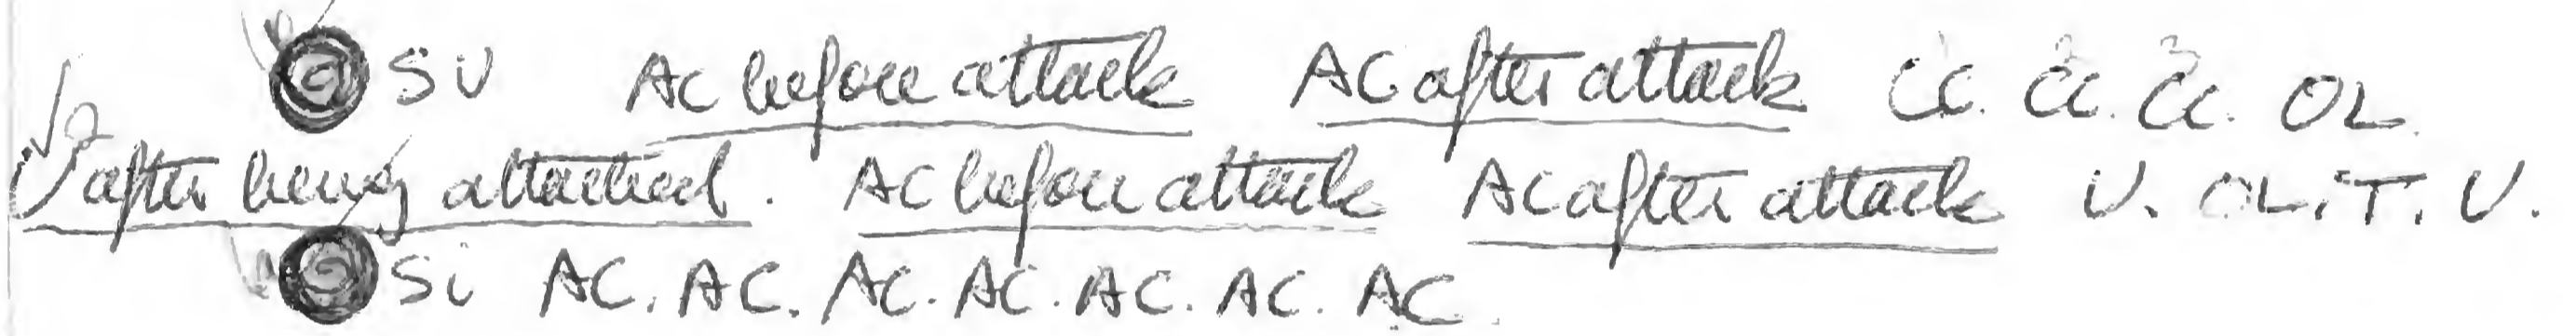 @ SU AC before attack AC after attack CC. CC. CC. OL.
V after being attacked. AC before attack AC after attack U. OLiT. U.
@ Si AC. AC. AC. AC. AC. AC. AC.